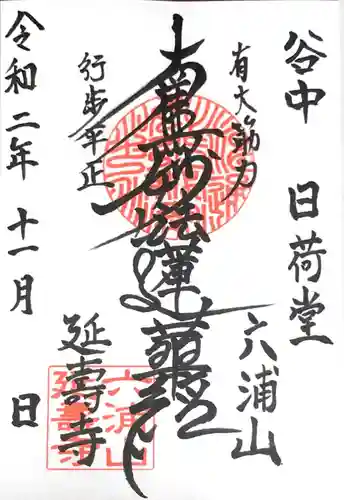 谷中 日荷堂
六浦山
有大筋力
南無妙法蓮華経
行歩平正
延壽寺
令和二年 十一月 日
六浦山
延壽寺